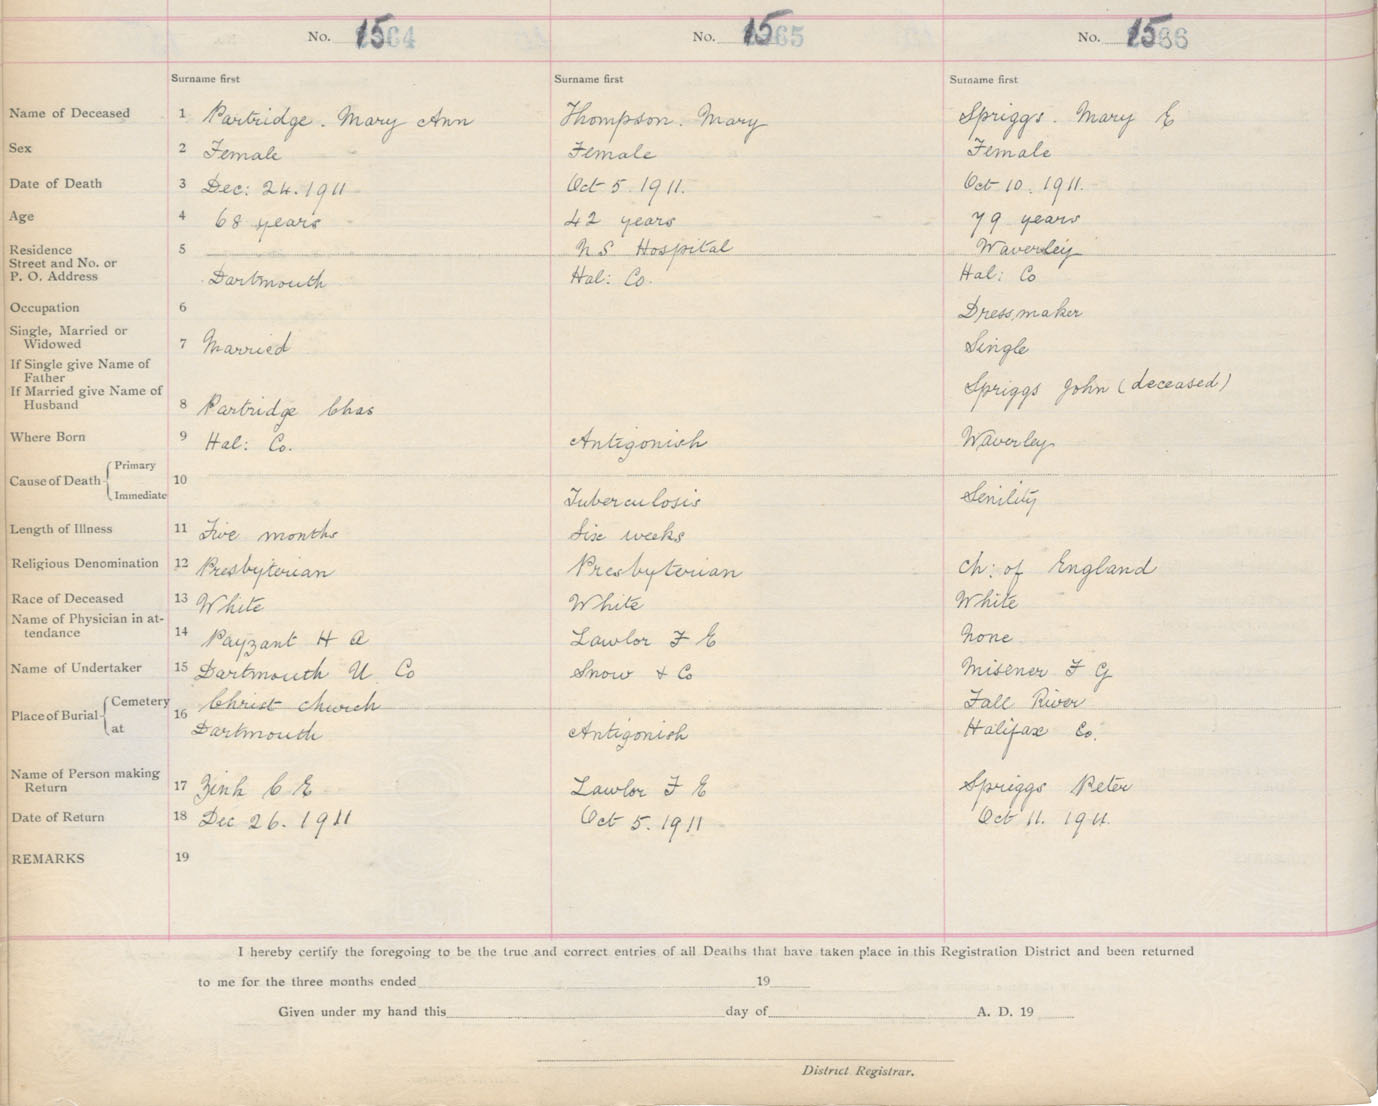 No. 1564 No. 1565 No. 1566
Surname first Surname first Surname first
Name of Deceased 1 Partridge. Mary Ann Thompson. Mary Spriggs. Mary E
Sex 2 Female Female Female
Date of Death 3 Dec: 24. 1911 Oct 5. 1911. Oct 10. 1911.
Age 4 68 years 42 years 79 years
Residence 5 N.S. Hospital Waverley
Street and No. or
P. O. Address Dartmouth Hal: Co. Hal: Co
Occupation 6 Dressmaker
Single, Married or
Widowed 7 Married Single
If Single give Name of
Father Spriggs John (deceased)
If Married give Name of
Husband 8 Partridge Chas
Where Born 9 Hal: Co. Antigonish Waverley
Cause of Death Primary 10
Immediate Tuberculosis Senility
Length of Illness 11 Five months Six weeks
Religious Denomination 12 Presbyterian Presbyterian Ch: of England
Race of Deceased 13 White White White
Name of Physician in at-
tendance 14 Payzant H A Lawlor F E None
Name of Undertaker 15 Dartmouth U. Co Snow + Co Misener F G
Place of Burial Cemetery 16 Christ church Fall River
at Dartmouth Antigonish Halifax Co.
Name of Person making
Return 17 Zink C E Lawlor F E Spriggs Peter
Date of Return 18 Dec 26. 1911 Oct 5. 1911 Oct 11. 1911.
REMARKS 19
I hereby certify the foregoing to be the true and correct entries of all Deaths that have taken place in this Registration District and been returned
to me for the three months ended 19
Given under my hand this day of A. D. 19
District Registrar.